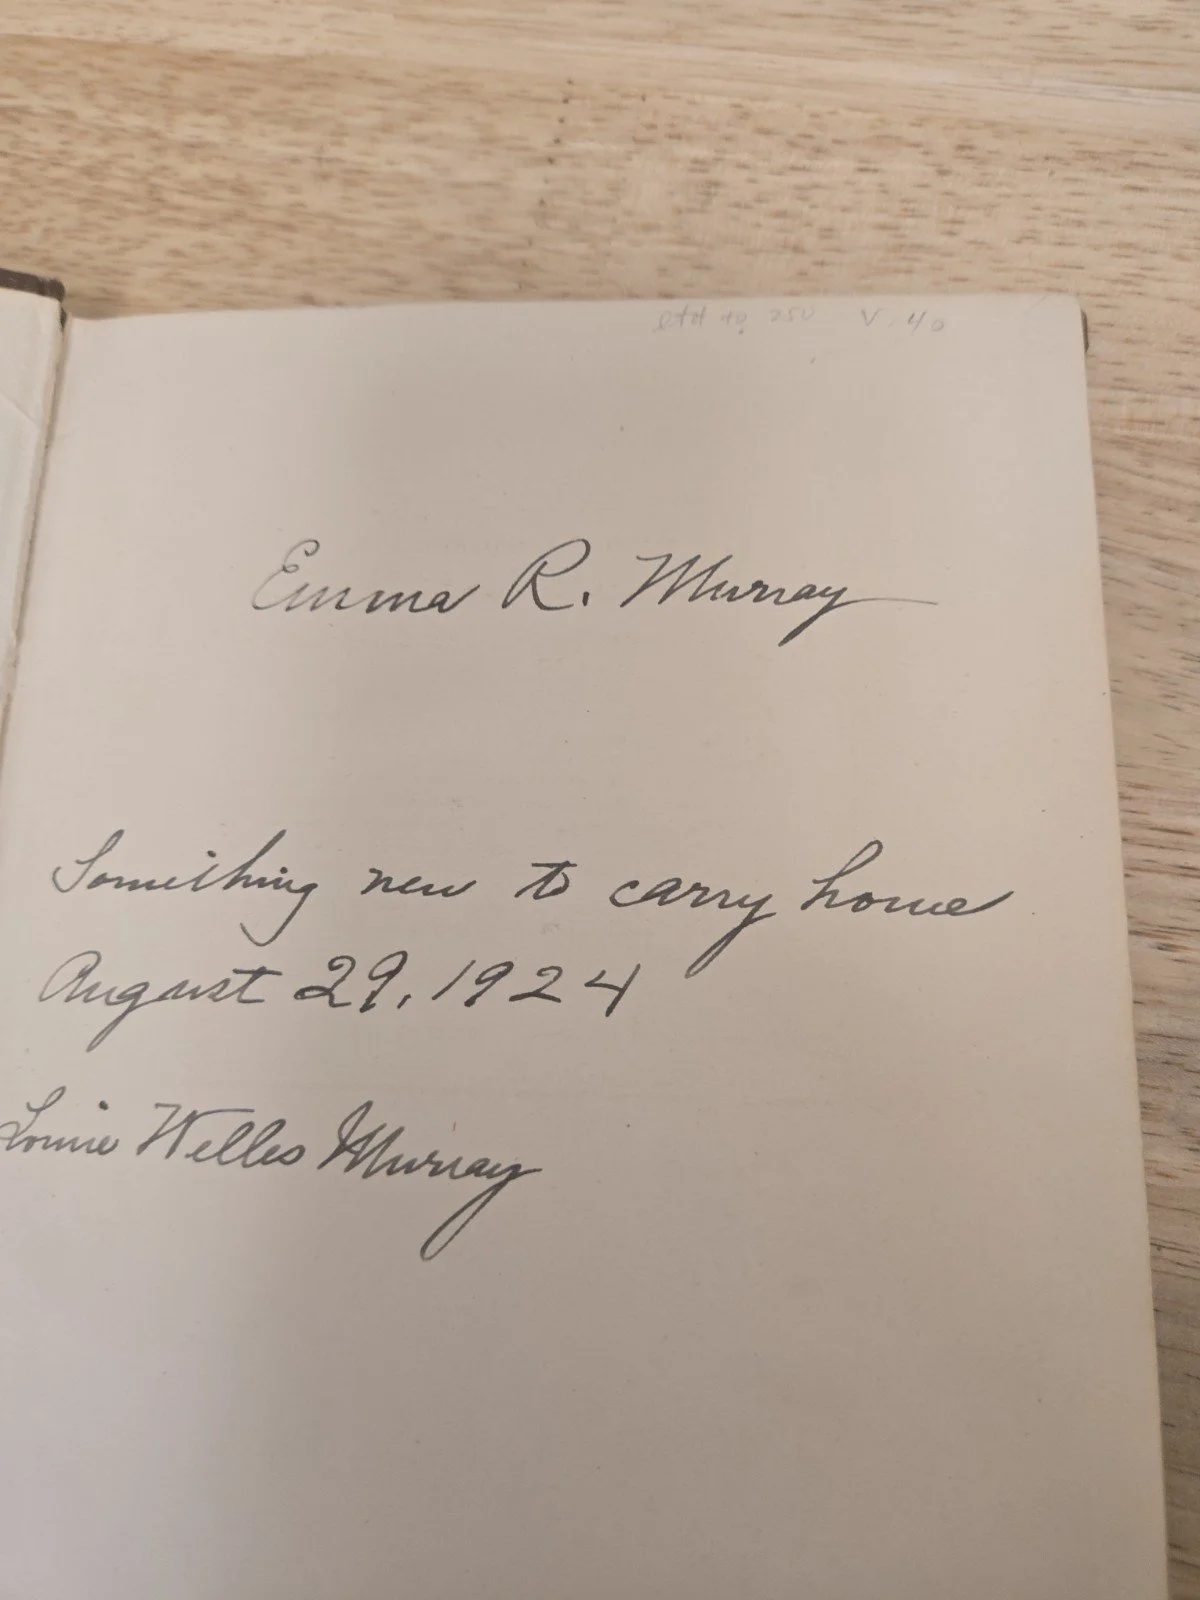 ltd to 250 V. 40
Emma R. Murray
Something new to carry home
August 29, 1924
Louie Welles Murray